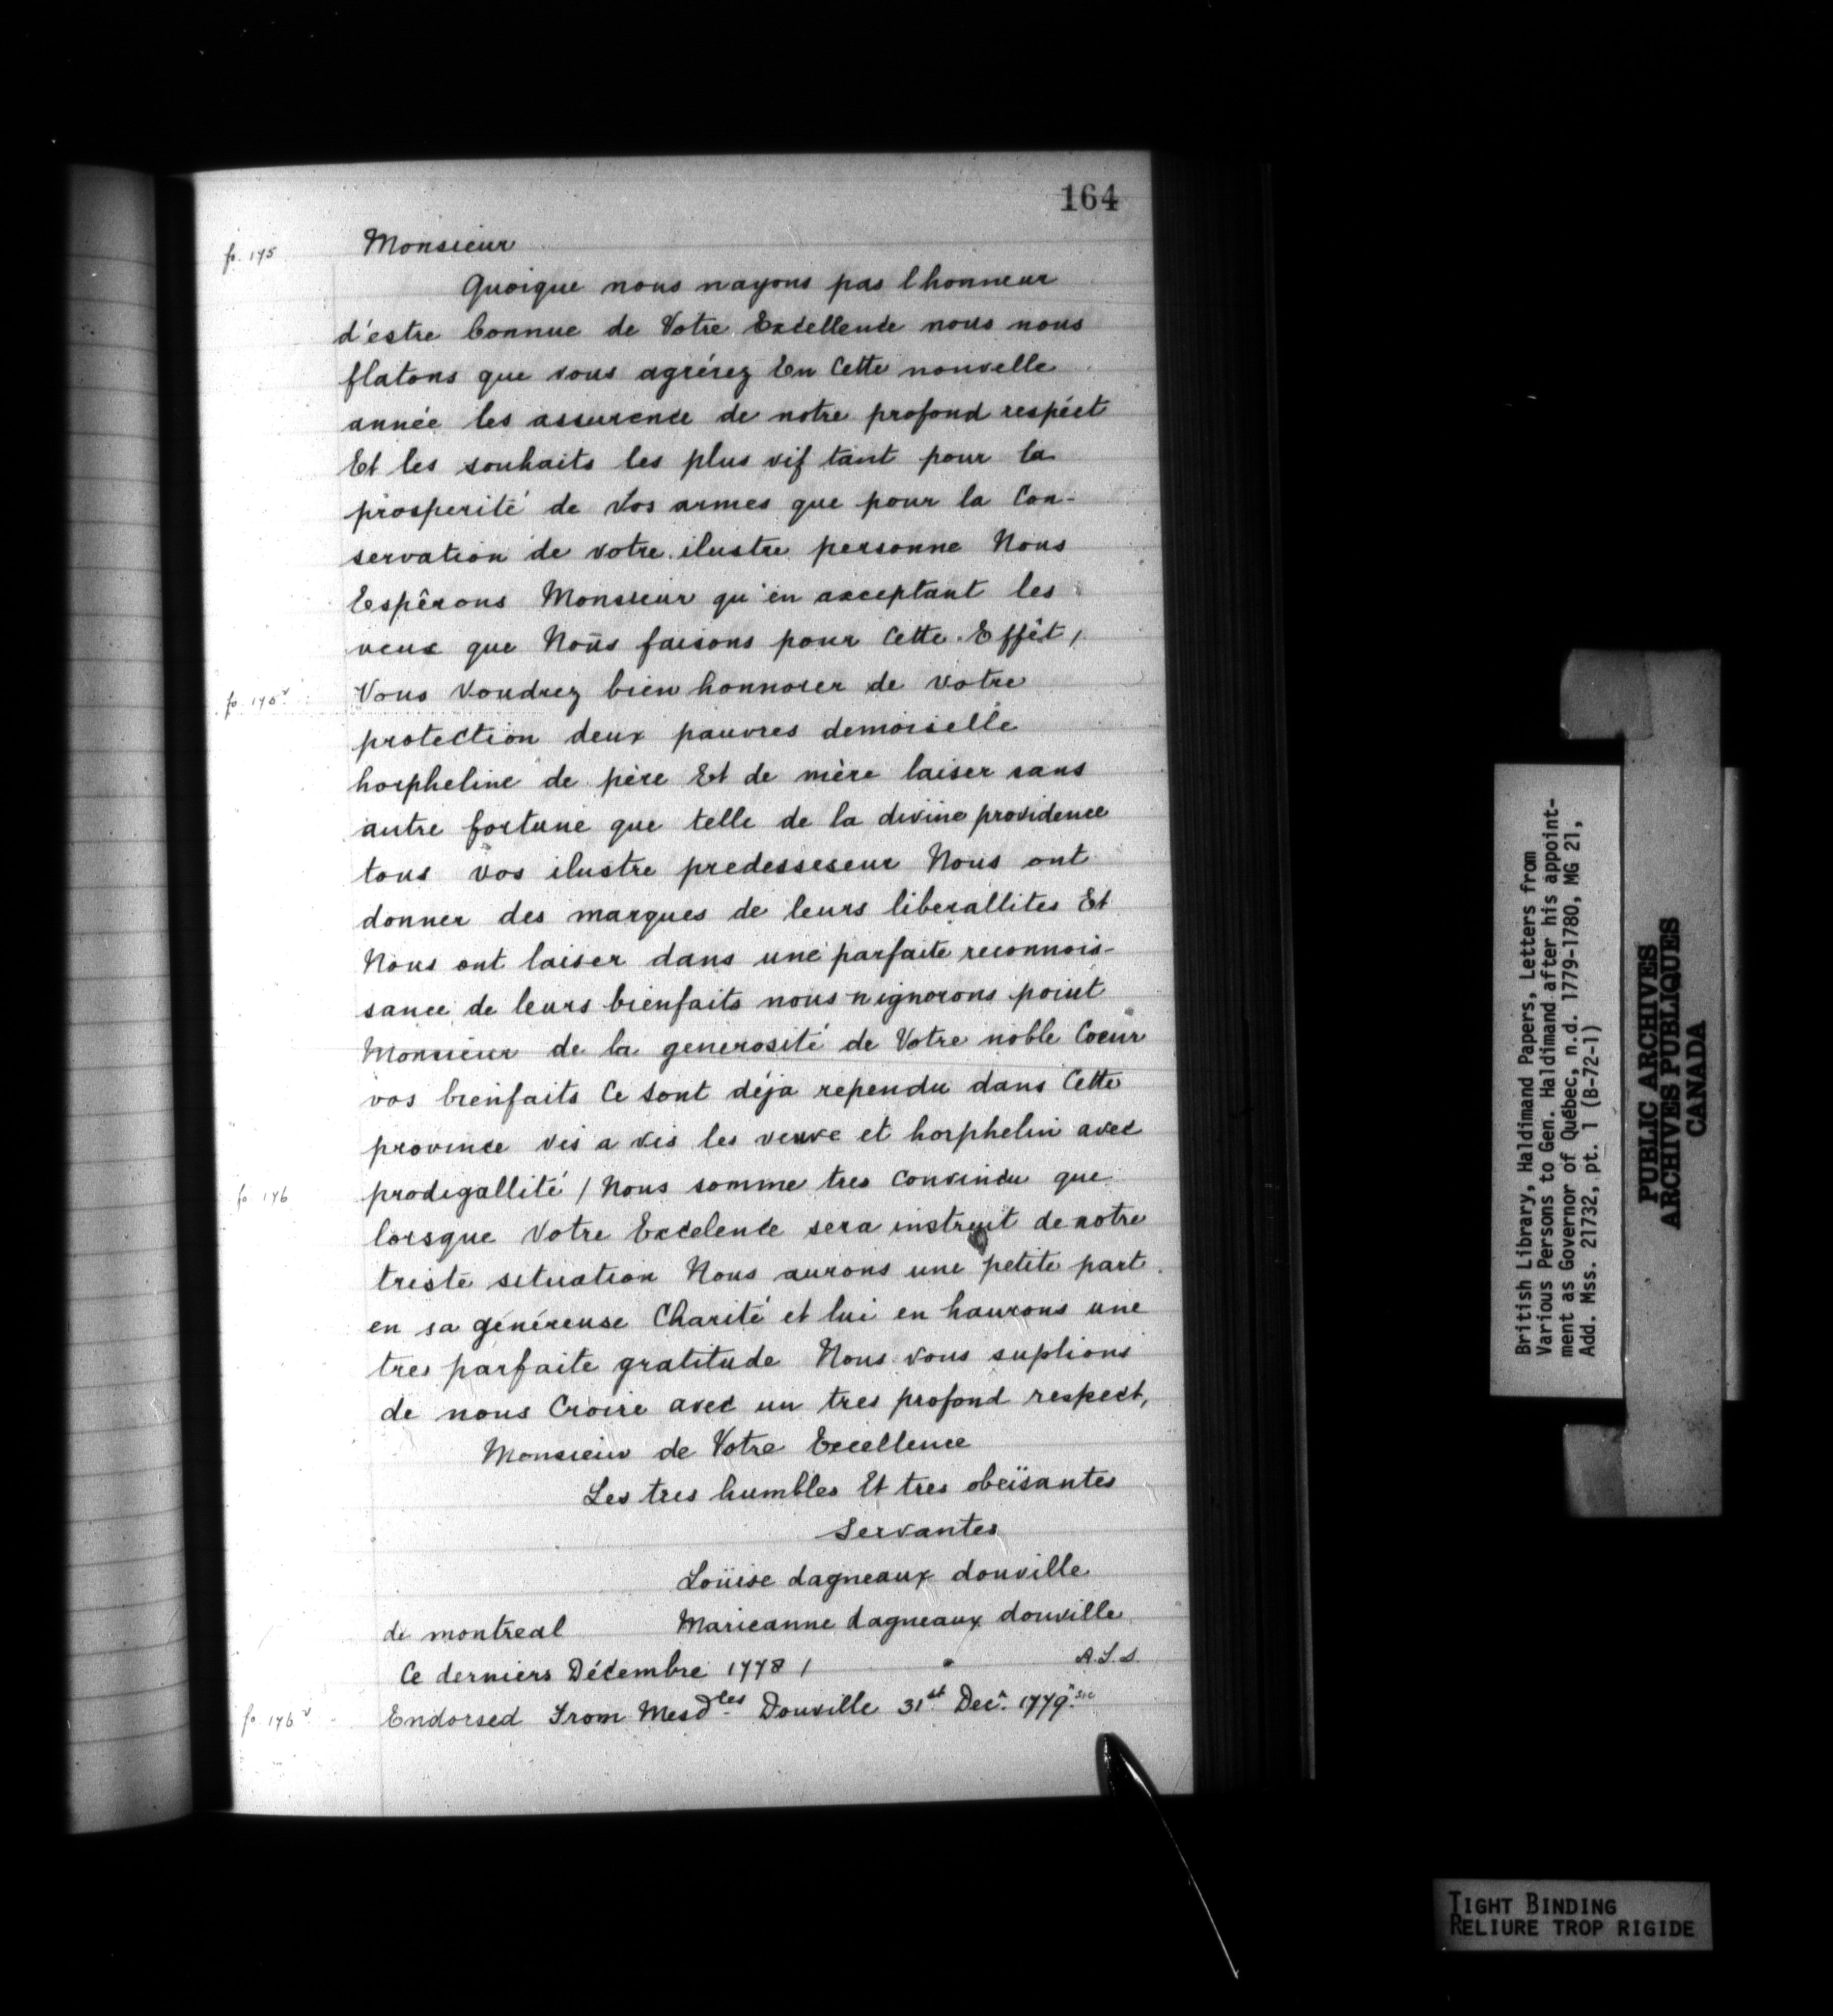 164
fo. 175
Monsieur
Quoique nous nayons pas l honneur
d'estre Connue de Votre Excellence nous nous
flatons que vous agrérez En Cette nouvelle
année les assurence de notre profond respéct
Et les souhaits les plus vif tant pour la
prosperité de Vos armes que pour la Con-
servation de votre ilustre personne Nous
Espêrons Monsieur qu'en acceptant les
veux que Nous faisons pour Cette Effêt,
fo. 175v
Vous Voudrez bien honnorer de votre
protection deux pauvres demoiselle
horpheline de père Et de mère laiser sans
autre fortune que celle de la divine providence
tous vos ilustre predesseseur Nous ont
donner des marques de leurs liberallites Et
Nous ont laiser dans une parfaite reconnois-
sance de leurs bienfaits nous n ignorons point
Monsieur de la generosité de Votre noble Coeur
vos bienfaits Ce sont déja rependu dans Cette
province vis a vis les veuve et horphelin avec
fo. 176
prodigallité / Nous somme tres Convincu que
lorsque Votre Excelence sera instruit de notre
triste situation Nous aurons une petite part
en sa généreuse Charité et lui en haurons une
tres parfaite gratitude Nous vous suplions
de nous Croire avec un tres profond respect,
Monsieur de Votre Excellence
Les tres humbles Et tres obeïsantes
Servantes
Loüise dagneaux douville
de montreal Marieanne dagneaux douville
Ce derniers Décembre 1778 / A.L.S.
fo. 176v
Endorsed From Mesdles Douville 31st Decr. 1779. sic
British Library, Haldimand Papers, Letters from
Various Persons to Gen. Haldimand after his appoint-
ment as Governor of Québec, n.d. 1779-1780, MG 21,
Add. Mss. 21732, pt. 1 (B-72-1)
PUBLIC ARCHIVES
ARCHIVES PUBLIQUES
CANADA
TIGHT BINDING
RELIURE TROP RIGIDE